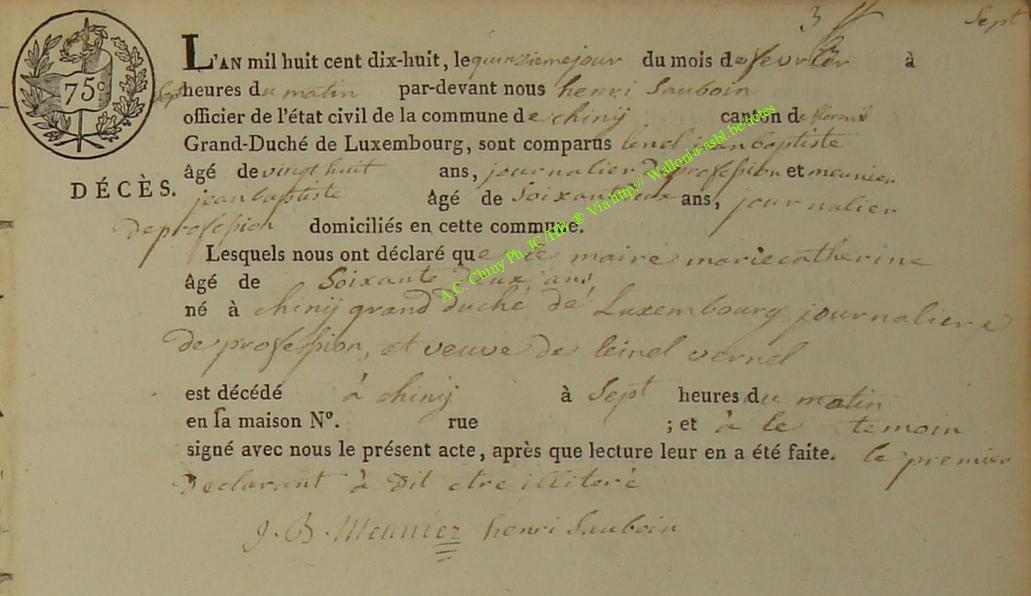 3
Sept
75c
L'AN mil huit cent dix-huit, le quinzieme jour du mois de fevrier à
Sept heures du matin par-devant nous henri Sauboin
officier de l'état civil de la commune de chinij canton de
Grand-Duché de Luxembourg, sont comparus jean baptiste
DÉCÈS.
âgé de vingt huit ans, journalier de profession et meunier
jean baptiste âgé de Soixante deux ans, journalier
de profession domiciliés en cette commune.
Lesquels nous ont déclaré que le maire marie catherine
âgé de Soixante deux ans
né à chinij grand duché de Luxembourg journaliere
de profession, et veuve de leinel vernel
est décédé à chinij à Sept heures du matin
en sa maison N°. rue ; et à le temoin
signé avec nous le présent acte, après que lecture leur en a été faite. le premier
Declarant à dit etre illiteré
J. B. Meunier henri Sauboin
A.C. Chiny Ph. JC /HB. ® Via http:// Wallonia-asbl.be/actes